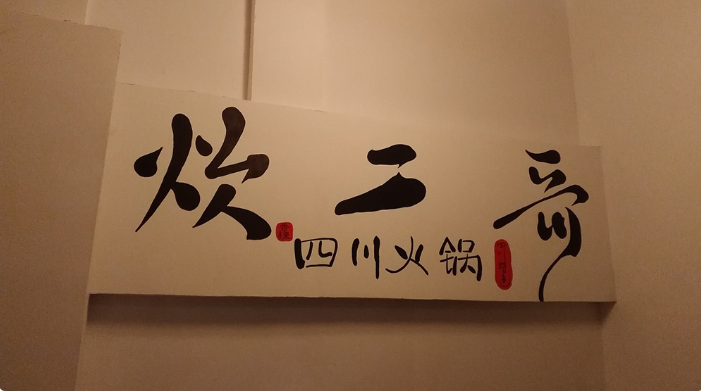 炊二哥
四川火锅